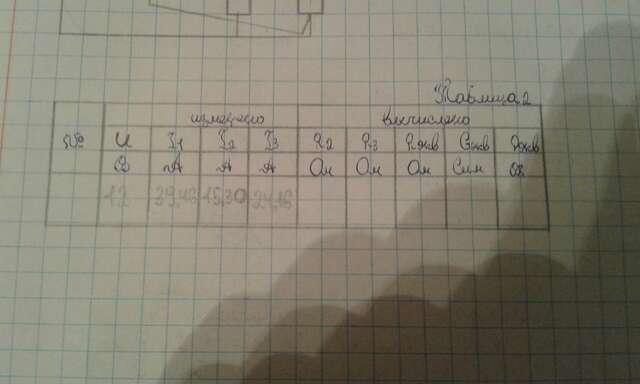 Таблица 2
измерено вычислено
№ U I1 I2 I3 R2 R3 Rэкв Gэкв
В А А А Ом Ом Ом Сим
12 39,46 15,30 24,16